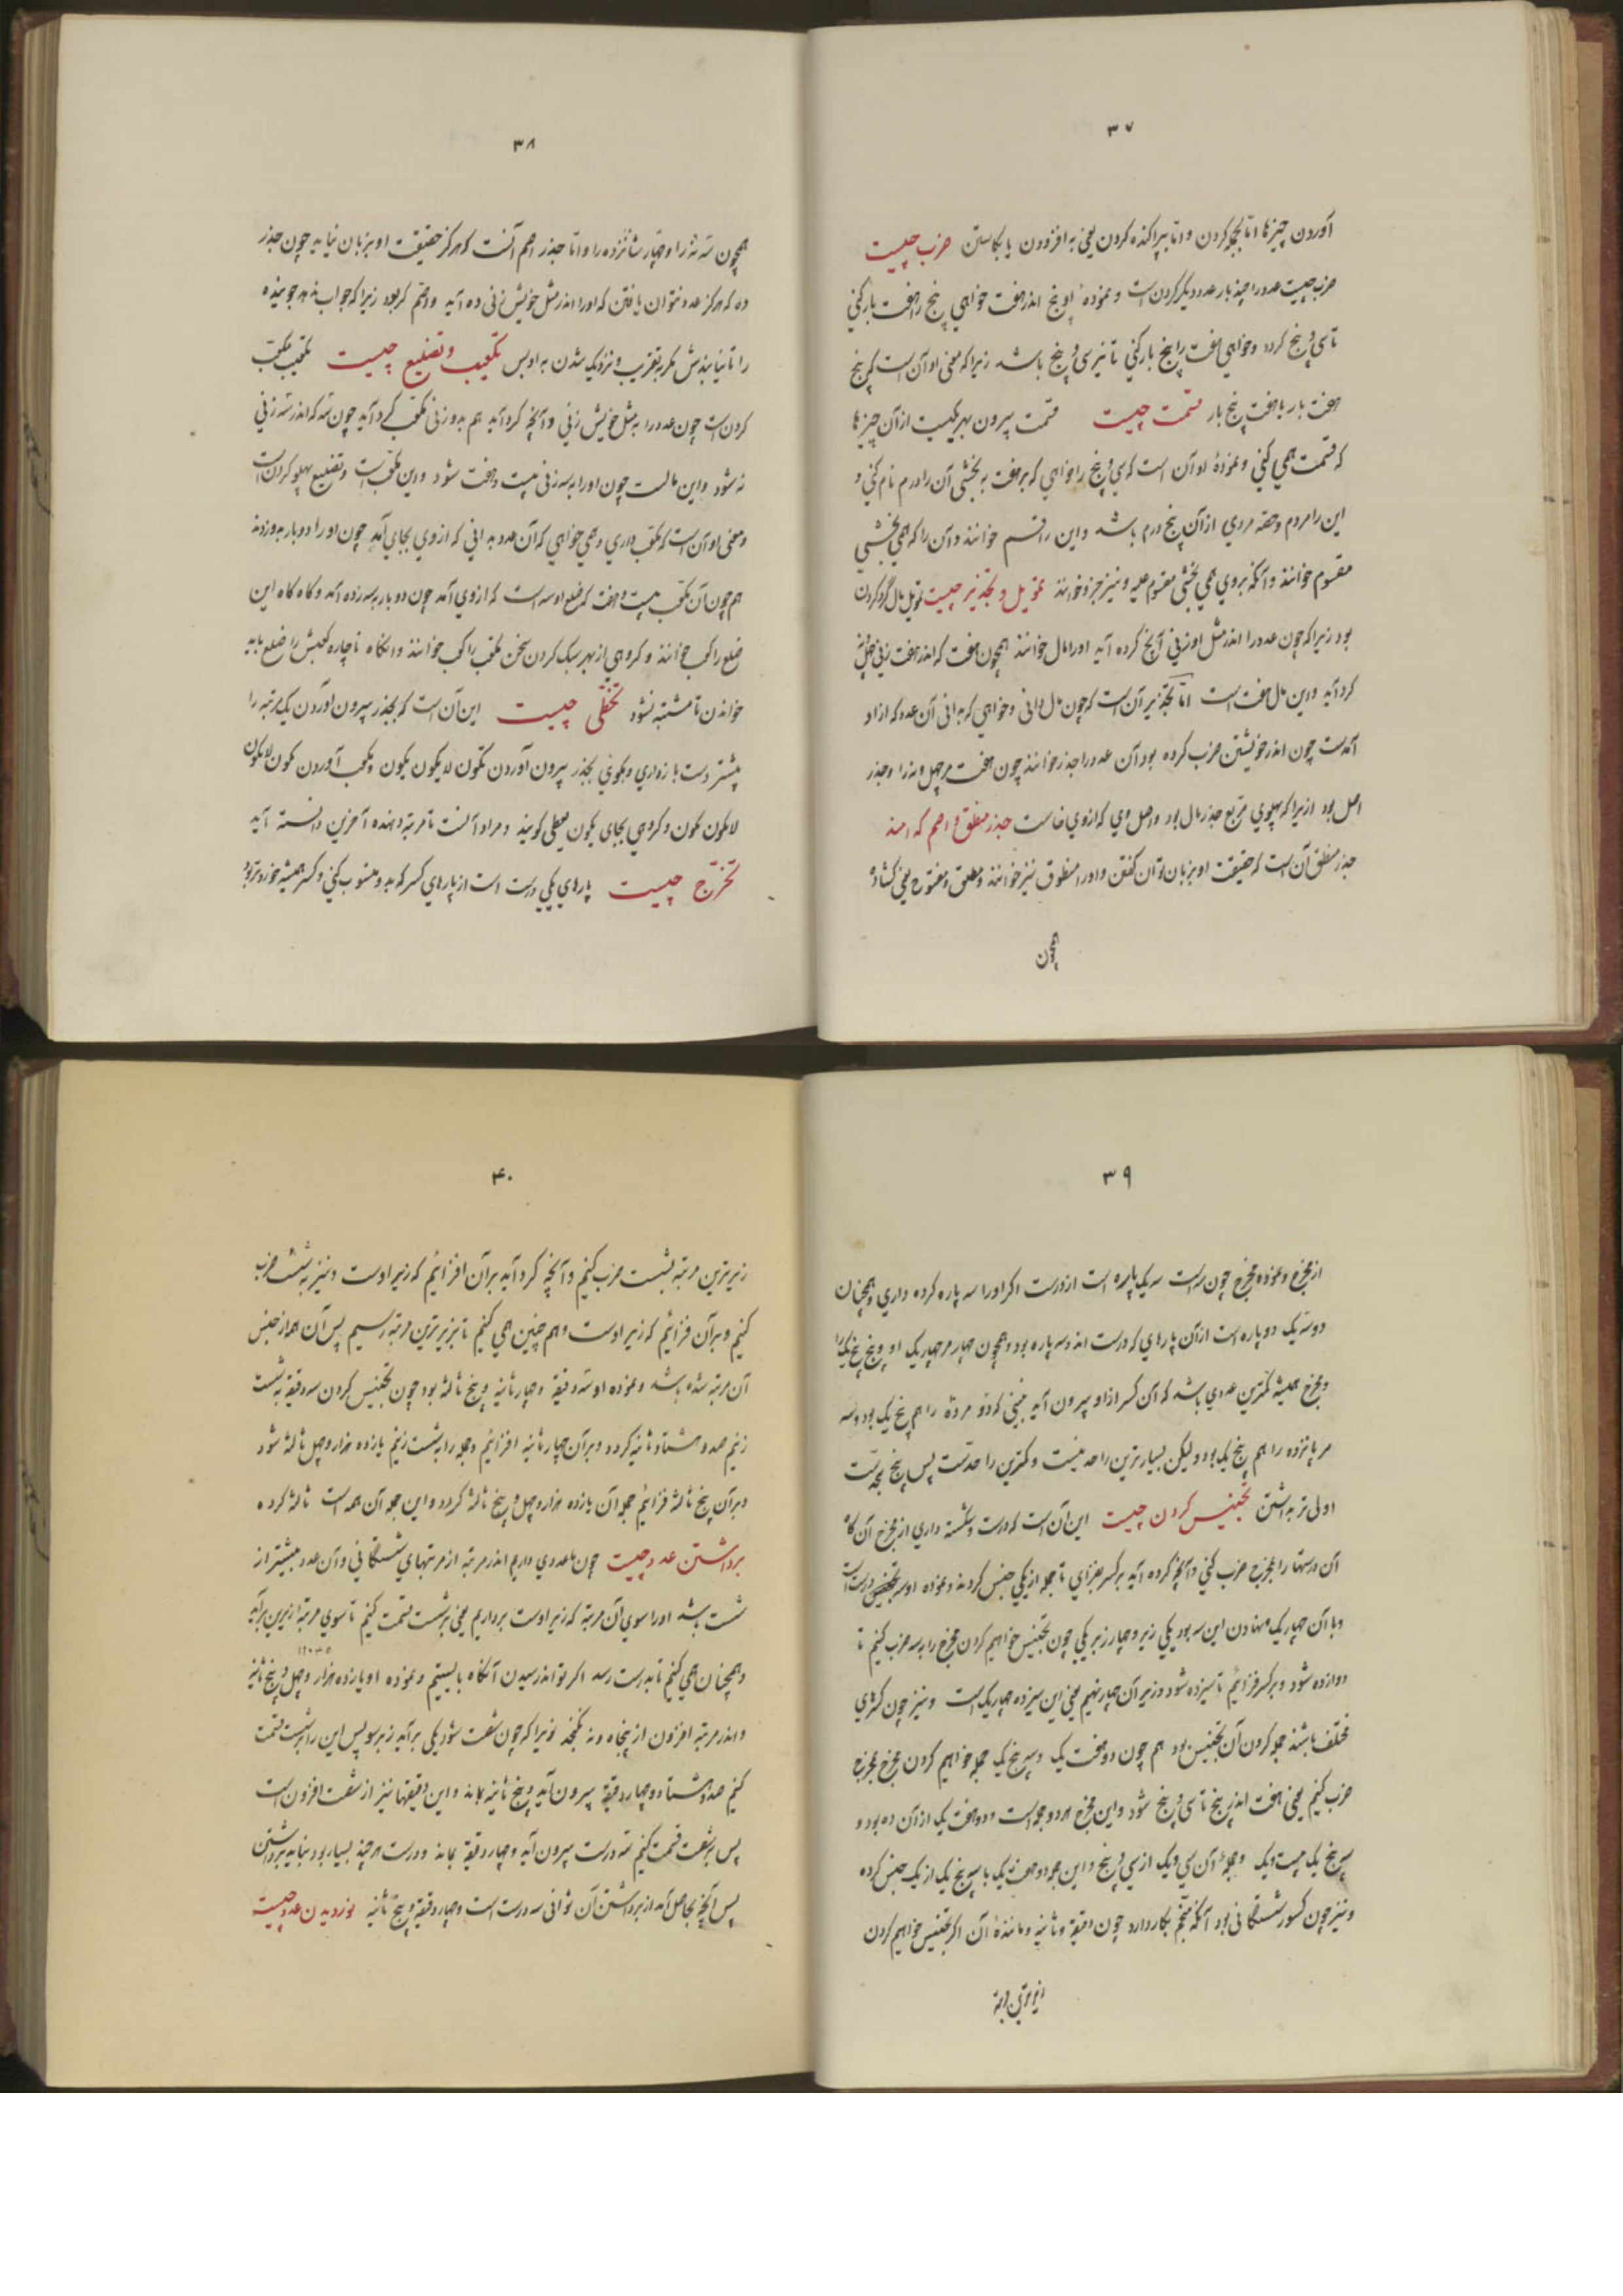 ۳۷
آوردن چیزها اما بجمله کردن و اما بپراکنده کردن یعنی به افزودن یا بکاستن ضرب چیست
ضرب چیست عدد را چند بار عدد دیگر کردن است و نموده او پنج اندر هفت خواهی پنج را هفت بار کنی
تا سی و پنج گردد و خواهی هفت را پنج بار کنی تا نیز سی و پنج باشد زیرا که معنی او آن است که پنج
هفت بار یا هفت پنج بار قسمت چیست قسمت بیرون بهر یکیست از آن چیزها
که قسمت همی کنی و نموده او آن است که سی و پنج را خواهی که بر هفت به بخشی آن را درم نام کنی و
این را مردم و حصه مردی از آن پنج درم باشد و این را قسم خوانند و آن را که همی بخشی
مقسوم خوانند و آنکه بروی همی بخشی مقسوم علیه و نیز جزو خوانند تمویل و تجذیر چیست تمویل مال گرد کردن
بود زیرا که چون عدد را اندر مثل او زنی آنچ گرده آید او را مال خوانند همچون هفت که اندر هفت زنی چهل و نه
گرد آید و این مال هفت است اما تجذیر آن است که چون مال دانی و خواهی که بدانی آن عدد که از او
آمدست چون اندر خویشتن ضرب کرده بود آن عدد را جذر خوانند چون هفت مر چهل و نه را و جذر
اصل بود ازیرا که پهلوی مربع جذر مال بود و اصل وی که ازوی خاست جذر منطق و اصم که امند
جذر منطق آن است که حقیقت او بزبان توان گفتن و او را منطوق نیز خوانند و مطلق و مفتوح یعنی گشاده
همچون
۳۸
همچون سه نه را و چهار شانزده را و اما جذر اصم آنست که هرگز حقیقت او بزبان نیاید چون جذر
ده که هرگز عدد نتوان یافتن که او را اندر مثل خویش زنی ده آید و اصم کر بود زیرا که جواب ندهد جوینده
را تا نیابندش مگر بتقریب و نزدیک شدن به او بس تکعیب و تضلیع چیست تکعیب مکعب
کردن است چون عدد را به مثل خویش زنی و آنچه گرد آید هم بدو زنی مکعب گرد آید چون سه که اندر سه زنی
نه شود و این مالست چون او را به سه زنی بیست و هفت شود و این مکعب است و تضلیع پهلو کردن است
و معنی او آن است که مکعب داری و همی خواهی که آن عدد بدانی که ازوی بجای آمد چون او را دو بار بدو زدند
هم چون آن مکعب بیست و هفت که ضلع او سه است که ازوی آمد چون دو بار به سه زده آمد و گاه گاه این
ضلع را کعب خوانند و گروهی از بهر سبک کردن سخن مکعب را کعب خوانند و انگاه ناچاره کعبش را ضلع باید
خواندن تا مشتبه نشود تخطی چیست این آن است که بجذر بیرون آوردن یک مرتبه را
پیشتر دست باز داری و بگوئی بجذر بیرون آوردن یکون لایکون یکون و بکعب آوردن یکون لایکون
لایکون یکون و گروهی بجای یکون یعطی گویند و مراد آنست تا مرتبه دهنده آخرین دانسته آید
تخرج چیست پارهای یکی درست است از پارهای کسر که بدو منسوب کنی و کسر همیشه خوردتر بود
۳۹
از مخرج و نموده مخرج چون سه است سه یک پاره است از درست اگر او را سه پاره کرده داری و همچنان
دو سه یک دو پاره است از آن پارهای که درست اندو سه پاره بود و همچون چهار مر چهار یک او و پنج پنج یک را
و مخرج همیشه کمترین عددی باشد که آن کسر از او بیرون آید نبینی که دو مر ده را هم پنج یک بود و سه
مر پانزده را هم پنج یک بود و لیکن بسیارترین را حد نیست و کمترین را حدست پس پنج بجدست
اولی تر به اشتن تجنیس کردن چیست این آن است که درست و شکسته داری از مخرج آن گاه
آن درستها را بمخرج ضرب کنی و آنچه گرده آید بر کسر بفزای تا جمله از یکی جنس گردند و نموده او سه درست است
و با آن چهار یک نهادن این سه بود یکی زیر و چهار زیر یکی چون تجنیس خواهیم کردن مخرج را به سه ضرب کنیم تا
دوازده شود و بر کسر فزائیم تا سیزده شود و زیر آن چهار نهیم یعنی این سیزده چهار یک است و نیز چون کسرهای
مختلف باشند جمله کردن آن تجنیس بود هم چون دو هفت یک و سه پنج یک جمله خواهیم کردن مخرج بمخرج
ضرب کنیم یعنی هفت اندر پنج تا سی و پنج شود و این مخرج هر دو جمله است و دو هفت یک از آن ده بود و
سه پنج یک بیست و یک و جمله آن سی و یک از سی و پنج و این جمله دو هفت یک با سه پنج یک از یک جنس کرده
و نیز چون کسور شستگانی بود آنکه منجم بکار دارد چون دقیقه و ثانیه و مانندهٔ آن اگر تجنیس خواهیم کردن
زیرترین مرتبه
۴۰
زیرترین مرتبه بشست ضرب کنیم و آنچه گرد آید بر آن افزائیم که زیر اوست و نیز به شست ضرب
کنیم و بر آن فزائیم که زیر اوست و هم چنین همی کنیم تا بزیرترین مرتبه رسیم پس آن همه از جنس
آن مرتبه شده باشد و نموده او سه دقیقه و چهار ثانیه و پنج ثالثه بود چون تجنیس کردن سه دقیقه به شست
زنیم صد و هشتاد ثانیه گردد و بر آن چهار ثانیه افزائیم و جمله را به شست زنیم یازده هزار و چهل ثالثه شود
و بر آن پنج ثالثه فزائیم جمله آن یازده هزار و چهل و پنج ثالثه گردد و این جمله آن همه است ثالثه کرده
برداشتن عدد چیست چون ما عددی داریم اندر مرتبه از مرتبهای شستگانی و آن عدد بیشتر از
شست باشد او را سوی آن مرتبه که زیر اوست برداریم یعنی بر شست قسمت کنیم تا سوی مرتبهٔ زیرین برآید
و همچنان همی کنیم تا بدرست رسد اگر تواند رسیدن آنگاه بایستیم و نموده او یازده هزار و چهل و پنج ثانیه
و اندر مرتبه افزون از پنجاه و نه نگنجد زیرا که چون شصت شود یکی برآید زبرسو پس این را بر شست قسمت
کنیم صد و هشتاد و چهار دقیقه بیرون آید و پنج ثانیه بماند و این دقیقها نیز از شصت افزون است
پس بر شصت قسمت کنیم سه درست بیرون آید و چهار دقیقه بماند و درست هر چند بسیار بود نباید برداشتن
پس آنچه بحاصل آمد از برداشتن آن ثوانی سه درست است و چهار دقیقه و پنج ثانیه نوردیدن عدد چیست